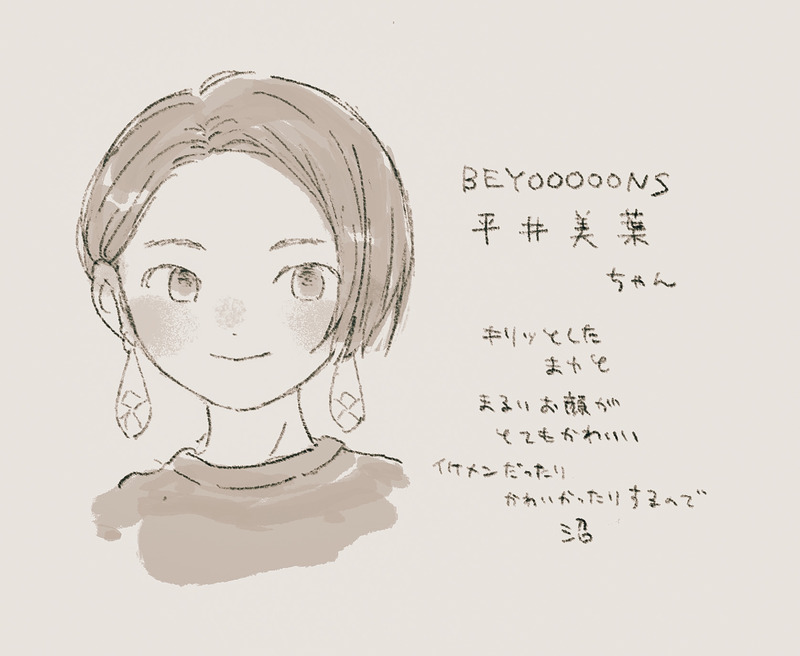 BEYOOOOONS
平井美葉
ちゃん
キリッとした
まゆと
まるいお顔が
とてもかわいい
イケメンだったり
かわいかったりするので
沼